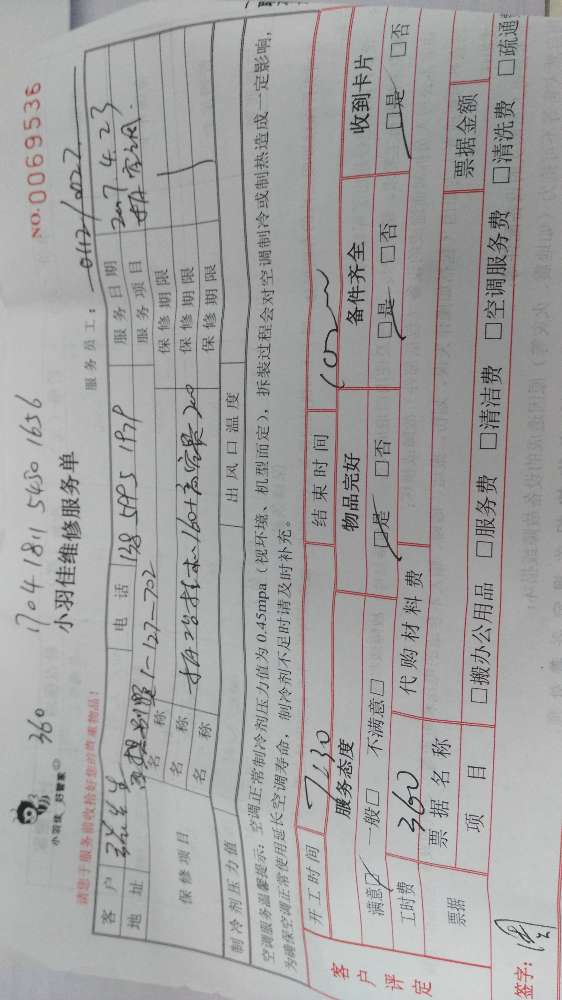 360
1704 1811 5480 1656
小羽佳 好管家
小羽佳维修服务单
NO. 0069536
请您于服务前收拾好您的贵重物品!
服务员工: 0112/0027
客户
电话 138 5995 1939
服务日期 2017.4.23
地址 1-127-702
服务项目
保修项目
名称
保修期限
名称
保修期限
名称
保修期限
制冷剂压力值
出风口温度
空调服务温馨提示: 空调正常制冷剂压力值为 0.45mpa (视环境、机型而定), 拆装过程会对空调制冷或制热造成一定影响,
为确保空调正常使用延长空调寿命, 制冷剂不足时请及时补充。
开工时间 7:30 结束时间
客户评定
服务态度 物品完好 备件齐全 收到卡片
满意☑ 一般□ 不满意□ ☑是 □否 ☑是 □否 ☑是 □否
工时费 360 代购材料费
票据 票据名称 票据金额
项目 □搬办公用品 □服务费 □清洁费 □空调服务费 □清洗费 □疏通
签字: